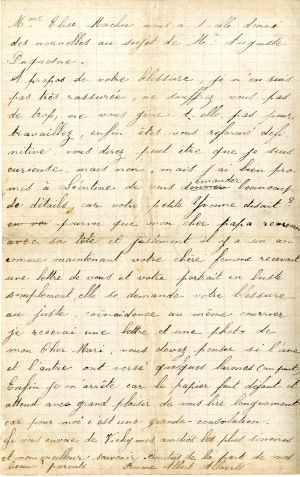 Mme Elise Machu vous a t elle donné
des nouvelles au sujet de Mr Auguste
Duquesne.
A propos de votre blessure, je n'en suis
pas très rassurée, ne souffrez vous pas
de trop, ne vous gène t elle pas pour
travaillez, enfin êtes vous reformé défi
nitive, vous direz peut être que je suis
curieuse, mais non, mais j'ai bien pro
mis à Léontine de vous demander beaucoup
de détails, car votre petite Yvonne disait ?
pourvu que mon cher papa revienne
avec sa tête et justement il y a un an
comme maintenant votre chère femme recevait
une lettre de vous et votre portrait en buste
simplement elle se demande votre blessure
au juste, coincidence au même courrier
je recevai une lettre et une photo de
mon Cher Mari, vous devez penser si l'une
et l'autre ont versé quelques larmes
Enfin je m'arrête car le papier fait défaut et
attend avec grand plaisir de vous lire longuement
car pour moi c'est une grande consolation.
Je vous envoie de Vichy mes amitiés les plus sincères
et mon meilleur souvenir Amitiés de la part de mes
beaux parents Femme Albert